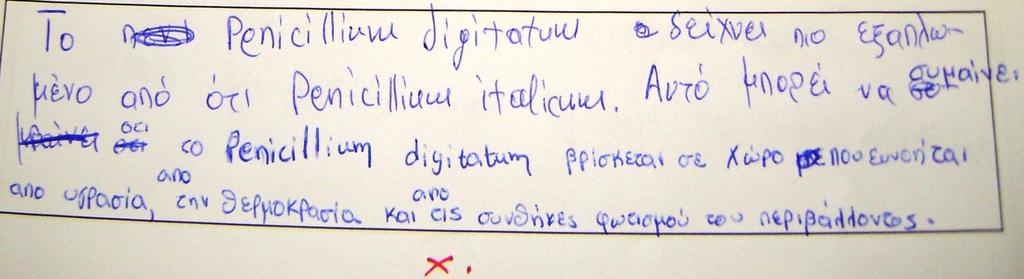 Το Penicillium digitatum δείχνει πιο εξαπλω-
μένο από ότι Penicillium italicum. Αυτό μπορεί να συμαίνει
οτι το Penicillium digitatum βρίσκεται σε χώρο που ευνοήται
απο υγρασία, απο την θερμοκρασία και απο τις συνθήκες φωτισμού του περιβάλλοντος.
x.